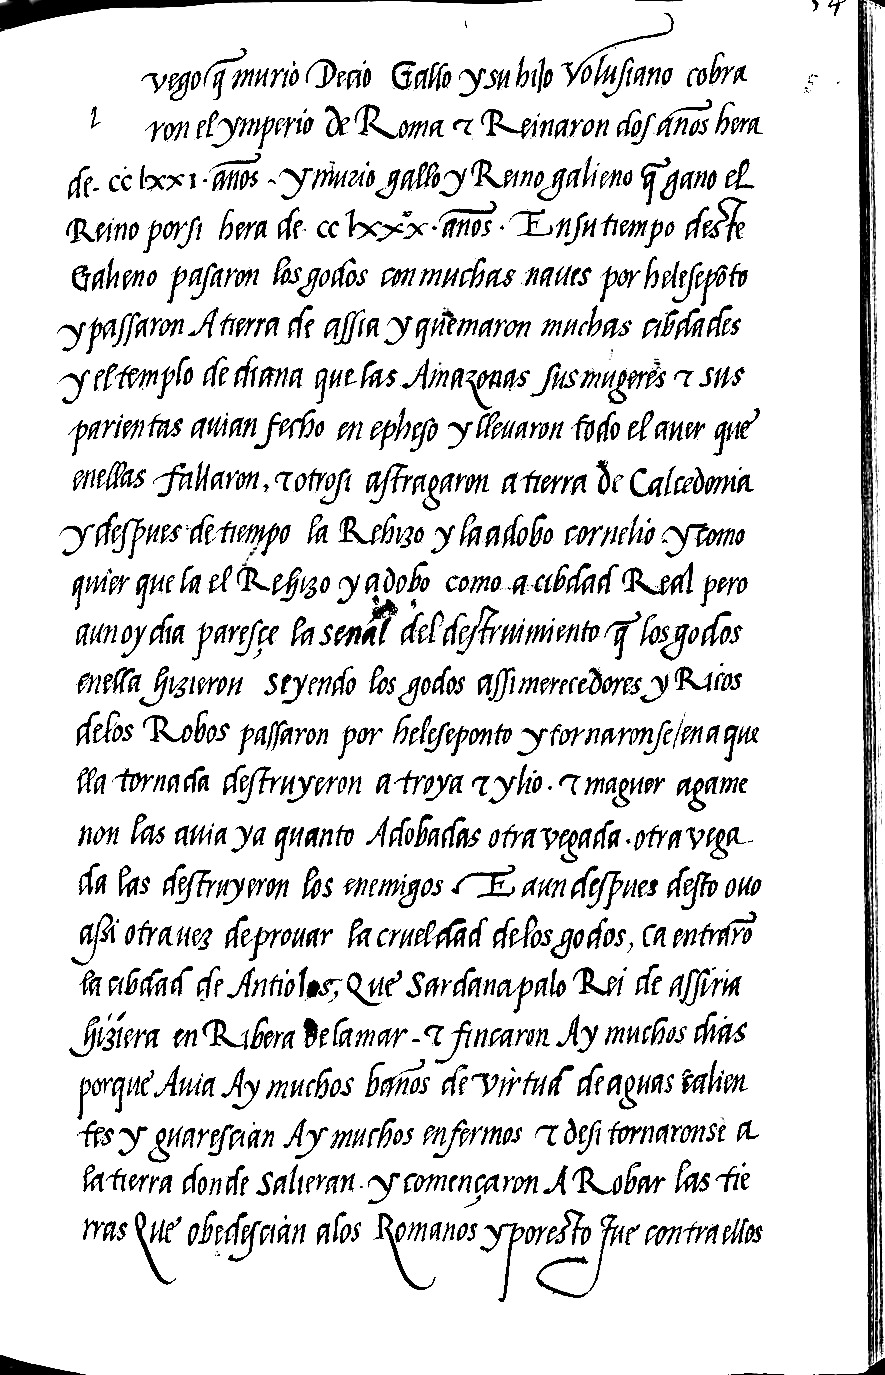 vego q̃ murio Decio Gallo y su hijo Volusiano cobra
ron el ymperio de Roma τ Reinaron dos años hera
de. cc lxx1. años . y murio gallo y Reino galieno q̃ gano el
Reino por si hera de cc lxxx. años. En su tiempo deste
Galieno pasaron los godos con muchas naues por helespõto
y passaron A tierra de assia y quemaron muchas cibdades
y el templo de diana que las Amazonas sus mugeres τ sus
parientas auian fecho en epheso y lleuaron todo el auer que
enellas fallaron, τ otrosi astragaron a tierra de Calcedonia
y despues de tiempo la Rehizo y la adobo cornelio y como
quier que la el Rehizo y adobo como a cibdad Real pero
aun oy dia paresçe la señal del destruimiento q̃ los godos
enella hizieron seyendo los godos assi merecedores y Ricos
delos Robos passaron por heleseponto y tornaronse/en aque
lla tornada destruyeron a troya τ ylio. τ maguer agame
non las auia ya quanto Adobadas otra vegada. otra vega
da las destruyeron los enemigos E aun despues desto ouo
assi otra uez de prouar la crueldad delos godos, ca entrarõ
la cibdad de Que Sardanapalo Rei de assiria
hiziera en Ribera dela mar - τ fincaron Ay muchos dias
porque Auia Ay muchos baños de virtud de aguas calien
tes y guarescian Ay muchos enfermos τ desi tornaronse a
la tierra donde salieran. y començaron A Robar las tie
rras Que obedescian alos Romanos y por esto fue contra ellos